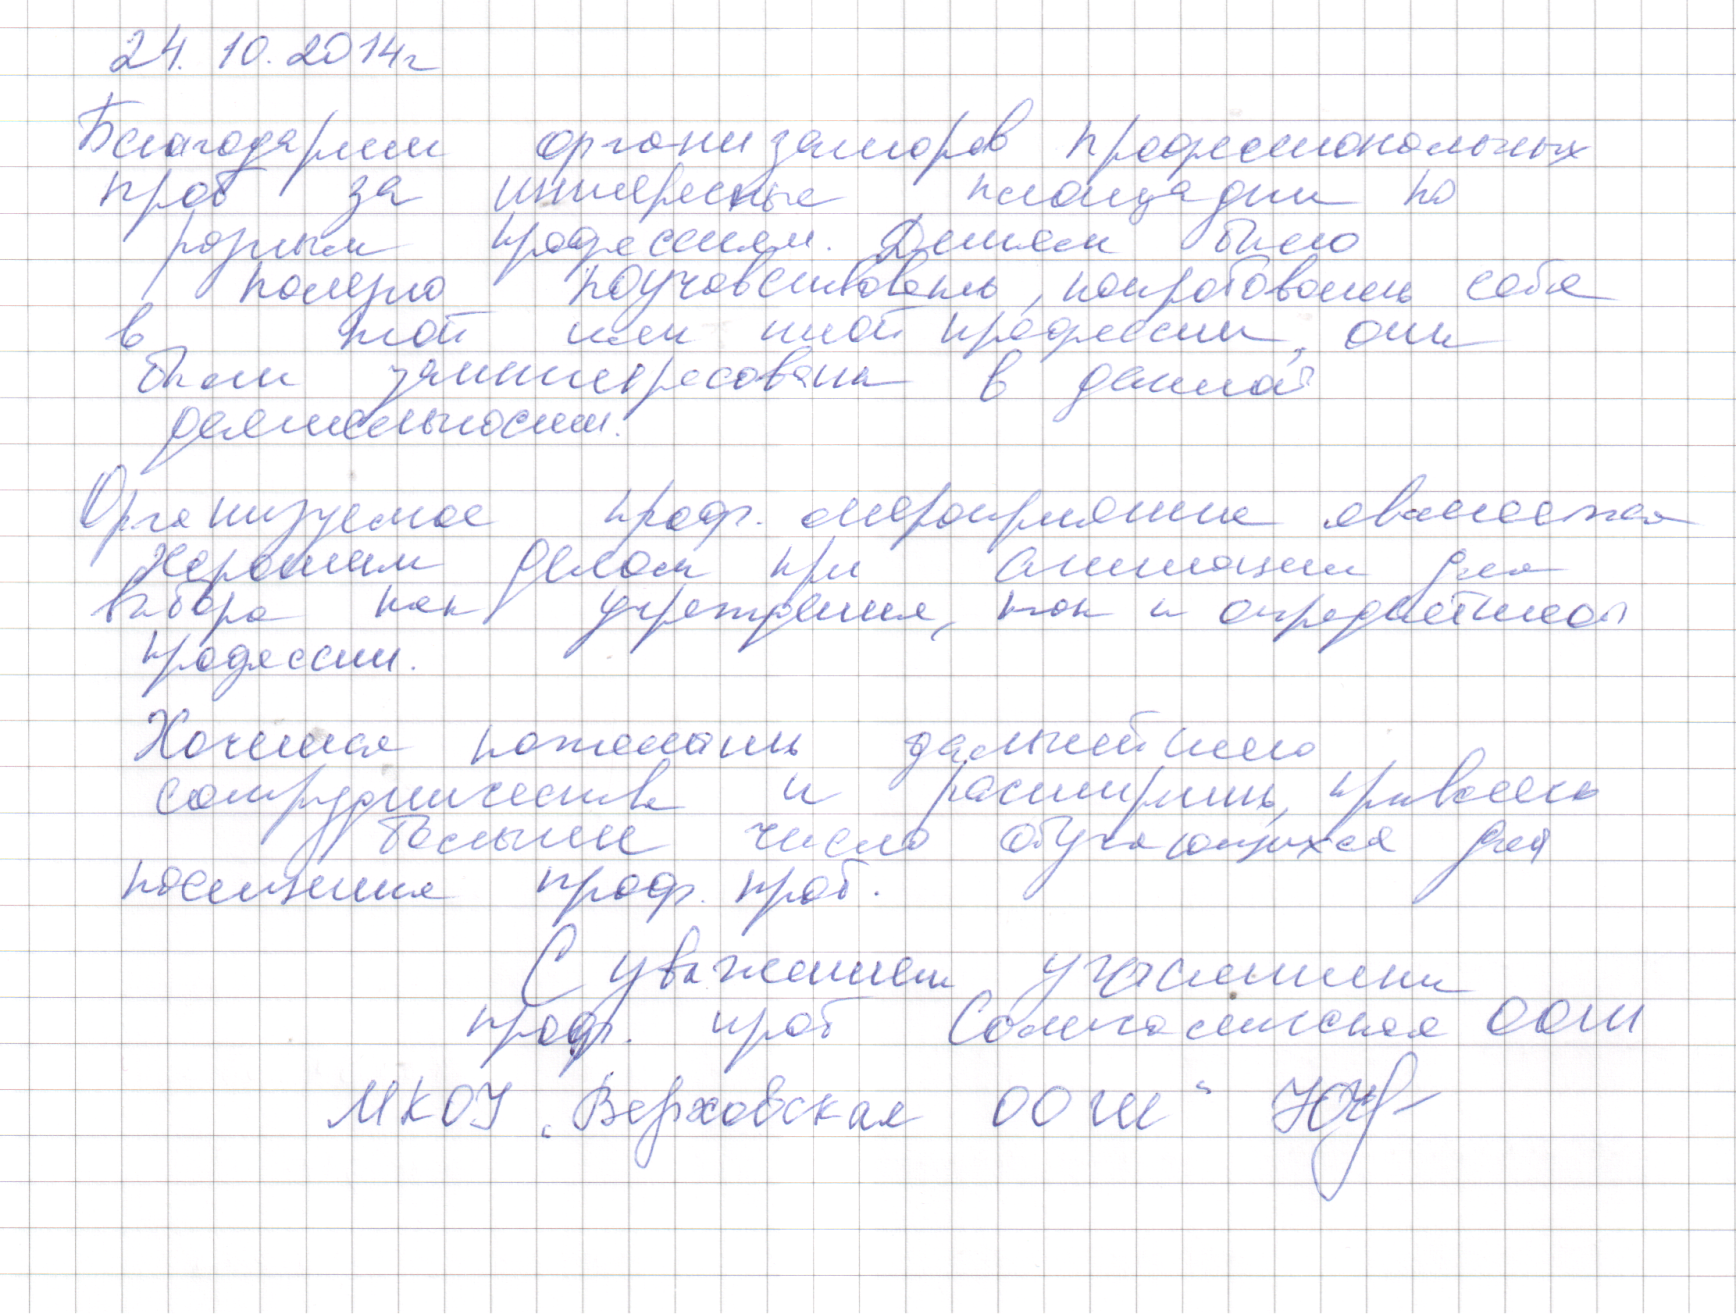 24. 10. 2014г
Благодарим организаторов профессиональных
проб за интересные площадки по
разным профессиям. Детям было
полезно поучавствовать, попробовать себя
в той или иной профессии, они
были заинтересованы в данной
деятельности.
Организуемое проф. мероприятие является
хорошим делом при агитации для
выбора как учреждения, так и определённой
профессии.
Хочется пожелать дальнейшего
сотрудничества и расширить, привлечь
большее число обучающихся для
посещения проф. проб.
С уважением участники
проф. проб ООШ
МКОУ "Верховская ООШ"